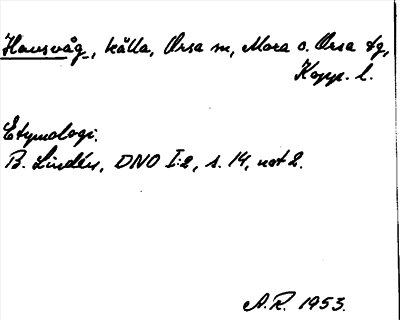 Hansvåg, källa, Orsa sn, Mora o. Orsa tg,
Kopp. l.
Etymologi.
B. Lindén, DNO I:2, s. 14, not 2.
A.R. 1953.